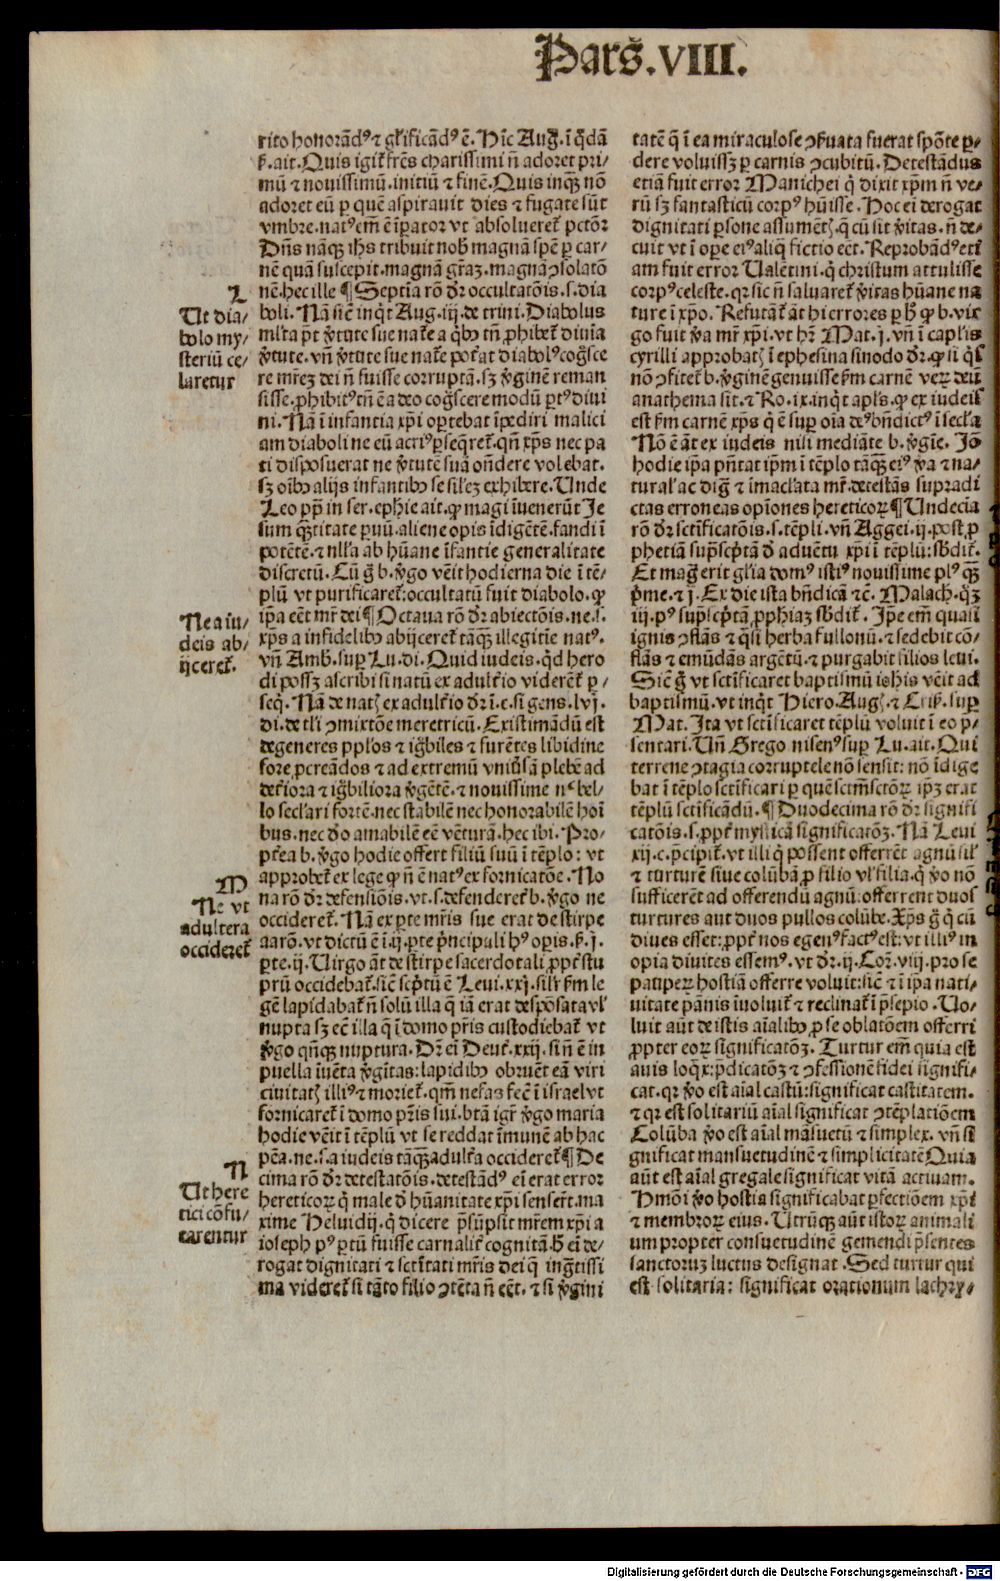 Pars̄.VIII.
rito honorādꝰ ⁊ gl̓ificādꝰ ē. Hīc Auḡ. ī q̄dā
ẜ. ait. Quis igit᷑ fr̄es charissimi n̄ adoret pri/
mū ⁊ nouissimū. initiū ⁊ finē. Quis inqꝫ nō
adoret eū ꝑ quē aspirauit dies ⁊ fugate sūt
vmbre. natꝰ em̄ ē īꝑator vt absolueret pctōr
Dn̄s nāqꝫ ihs tribuit nob̄ magnā spē ꝑ car/
nē quā suscepit. magnā gr̄aꝫ. magnā ꝯsolatō
nē. hec ille ¶ Septīa rō dr̄ occultatōis. s. dia
boli. Nā sic̄ inq̓t Aug. iij. de trini. Diabolus
ml̓ta p̄t v̓tute sue nat᷑e a q̓bꝰ tn̄ ꝓhibet᷑ diuīa
v̓tute. vn̄ v̓tute sue nat᷑e pot᷑at diabolꝰ cog̓sce
re mr̄eꝫ dei n̄ fuisse corruptā. sꝫ v̓ginē reman
sisse. ꝓhibitꝰ tn̄ ē a deo cog̓scere modū ꝑtꝰ diui
ni. Nā ī infantia xp̄i oꝑtebat īpediri malici
am diaboli ne eū acriꝰ ꝑseq̄ret᷑. qn̄ xp̄s nec pa
ti disposuerat ne v̓tutē suā on̄dere volebat.
sꝫ oībꝰ alijs infantibꝰ se sil̓eꝫ exhibere. Unde
Leo pp̄ in ser. ephi̅e ait. ꝙ magi īuenerūt Je
sum quātitate ꝑuū. aliene opis īdigētē. fandi ī
potētē. ⁊ nll̓a ab hūane īfantie generalitate
discretū. Cū g̓ b. v̓go vēit hodierna die ī tē/
plū vt purificaret᷑: occultatū fuit diabolo. ꝙ
ip̄a eēt mr̄ dei ¶ Octaua rō dr̄ abiectōis. ne. s.
xp̄s a infidelibꝰ abijceret᷑ tāqꝫ illegitīe natꝰ.
vn̄ Amb̄. suꝑ Lu. di. Quid iudeis. qd hero
di possꝫ ascribi si natū ex adult᷑io viderēt ꝑ/
seq̓. Nā de natꝭ ex adult᷑io dr̄ ī. c. si gens. lvj.
di. de tl̓i ꝯmixtōe meretricū. Existimādū est
degeneres ppl̓os ⁊ ig̓biles ⁊ furētes libidine
fore ꝓcreādos ⁊ ad extremū vniūsā plebē ad
det᷑iora ⁊ ig̓biliora v̓gētē. ⁊ nouissime nᶜ bel/
lo secl̓ari fortē. nec stabilē nec honorabilē hoī
bus. nec d̓o amabilē eē vēturā. hec ibi. Pro/
pt᷑ea b. v̓go hodie offert filiū suū ī tēplo: vt
approbet᷑ ex lege ꝙ n̄ ē natꝰ ex fornicatōe. No
na rō dr̄ defensiōis. vt. s. defenderet᷑ b. v̓go ne
occideret᷑. Nā ex ꝑte mr̄is sue erat de stirpe
aarō. vt dictū ē ī. ij. ꝑte p̄ncipali hꝰ oꝑis. ẜ. j.
ꝑte. ij. Uirgo āt de stirpe sacerdotali ꝓpt᷑ stu
prū occidebat᷑. sic̄ sc̓ptū ē Leui. xxj. sil̓r ẜm le
gē lapidabat᷑ n̄ solū illa q̄ iā erat despōsata vl̓
nupta sꝫ eē illa q̄ ī domo pr̄is custodiebat᷑ vt
v̓go qn̄qꝫ nuptura. Dr̄ eī Deut᷑. xxij. si n̄ ē in
puella īuēta v̓gītas: lapidibꝰ obruēt eā viri
ciuitatꝭ illiꝰ ⁊ moriet᷑. qm̄ nefas fec̄ ī israel vt
fornicaret᷑ ī domo pr̄is sui. btā igr̄ v̓go maria
hodie vēit ī tēplū vt se reddat īmunē ab hac
pēa. ne. s. a iudeis tāqꝫ adult᷑a occideret᷑ ¶ De
cima rō dr̄ detestatōis. detestādꝰ eī erat error
hereticorꝝ q̓ male d̓ hūanitate xp̄i sensert̄. ma
xime Heluidij. q̓ dicere p̄sūpsit mr̄em xp̄i a
ioseph pꝰ ꝑtū fuisse carnalit᷑ cognitā. h̄ eī de/
rogat dignitati ⁊ sctītati mr̄is dei q̄ ingtissi
ma videret᷑ si tāto filio ꝯtēta n̄ eēt. ⁊ si v̓gini
L
Ut dia/
bolo my/
steriū ce/
laretur
Ne a iu/
deis ab/
ijceret᷑.
M
Ne vt
adultera
occideret᷑
N
Ut here
tici cōfu/
tarentur
tatē q̄ ī ea miraculose ꝯẜuata fuerat spōte ꝑ/
dere voluissꝫ ꝑ carnis ꝯcubitū. Detestādus
etiā fuit error Manichei q̓ dixit xp̄m n̄ ve/
rū sꝫ fantasticū corpꝰ hūisse. Hoc eī derogat
dignitati ꝑsone assumētꝭ. q̄ cū sit v̓itas. n̄ de/
cuit vt ī oꝑe eiꝰ aliq̄ fictio eēt. Reprobādꝰ etī
am fuit error Ualētini. q̓ christum attulisse
corpꝰ celeste. qr sic n̄ saluaret᷑ v̓itas hūane na
ture ī xp̄o. Refutāt᷑ āt hi errores ꝑ h̄ ꝙ b. vir
go fuit v̓a mr̄ xp̄i. vt hr̄ Mat. j. vn̄ ī capl̓is
cyrilli approbatꝭ ī ephesina sinodo dr̄. ꝙ si q̓s
nō ꝯfitet᷑ b. v̓ginē genuisse ẜm carnē verꝝ deū
anathema sit. ⁊ Ro. ix. inq̓t apl̓s. ꝙ ex iudeis
est ẜm carnē xp̄s q̓ ē suꝑ oīa deꝰ bn̄dictꝰ ī secl̓a
Nō ē āt ex iudeis nisi mediāte b. v̓gīe. Jō
hodie ip̄a pn̄tat ip̄m ī tēplo tāqꝫ eiꝰ v̓a ⁊ na/
tural̓ ac dig̓ ⁊ īmacl̓ata mr̄. detestās supradi
ctas erroneas opīones hereticorꝝ ¶ Undecīa
rō dr̄ sctīficatōis. s. tēpli. vn̄ Aggei. ij. post ꝓ
phetiā sup̄sc̓ptā d̓ aduētu xp̄i ī tēplū: sb̄dit᷑.
Et mag̓ erit gl̓ia domꝰ istiꝰ nouissime plꝰ qꝫ
p̓me. ⁊ ī. Ex die ista bn̄dicā ⁊c̄. Malach. qꝫ
iij. pꝰ sup̄sc̓ptā ꝓphīaꝫ sb̄dit᷑. Jp̄e em̄ quasi
ignis ꝯflās ⁊ q̄si herba fullonū. ⁊ sedebit cō/
flās ⁊ emūdās argētū. ⁊ purgabit filios leui.
Sic̄ g̓ vt sctīficaret baptismū iohis vēit ad
baptismū. vt inq̓t Hiero. Augꝭ. ⁊ Cris̄. suꝑ
Mat. Ita vt sctīficaret tēplū voluit ī eo p̄/
sentari. Un̄ Grego nisenꝰ suꝑ Lu. ait. Qui
terrene ꝯtagia corruptele nō sensit: nō īdige
bat ī tēplo sctīficari ꝑ quē sctm̄ sctōrꝝ ip̄ꝫ erat
tēplū sctīficādū. ¶ Duodecima rō dr̄ signifi
catōis. s. ꝓpt᷑ mysticā significatōꝫ. Nā Leui
xij. c. p̄cipit᷑. vt illi q̓ possent offerrēt agnū sil̓
⁊ turturē siue colūbā ꝓ filio vl̓ filia. q̓ v̓o nō
sufficerēt ad offerendū agnū: offerrent duos
turtures aut duos pullos colūbe. Xp̄s g̓ q̓ cū
diues esset: ꝓpt᷑ nos egenꝰ factꝰ est: vt illiꝰ in
opia diuites essemꝰ. vt dr̄. ij. Coꝝ. viij. pro se
pauperꝝ hostiā offerre voluit: sic̄ ⁊ ī ipa nati/
uitate pānis īuoluit᷑ ⁊ reclinat᷑ ī p̄sepio. Uo/
luit aūt de istis aīalibꝰ ꝓ se oblatōem offerri
ꝓpter eorꝝ significatōꝫ. Turtur em̄ quia est
auis loq̄x: p̄dicatōꝫ ⁊ ꝯfessionē fidei signifi/
cat. qr v̓o est aīal castū: significat castitatem.
⁊ qr est solitariū aīal significat ꝯtēplatiōem
Colūba v̓o est aīal māsuetū ⁊ simplex. vn̄ si
gnificat mansuetudinē ⁊ simplicitatē Quia
aūt est aīal gregale significat vitā actiuam.
Hmōi v̓o hostia significabat ꝑfectiōem xp̄i
⁊ membrorꝝ eius. Utrūqꝫ aūt istorꝝ animali
um propter consuetudinē gemendi p̄sentes
sanctoruꝫ luctus designat. Sed turtur qui
est solitaria: significat orationum lachry/
Digitalisierung gefördert durch die Deutsche Forschungsgemeinschaft - DFG